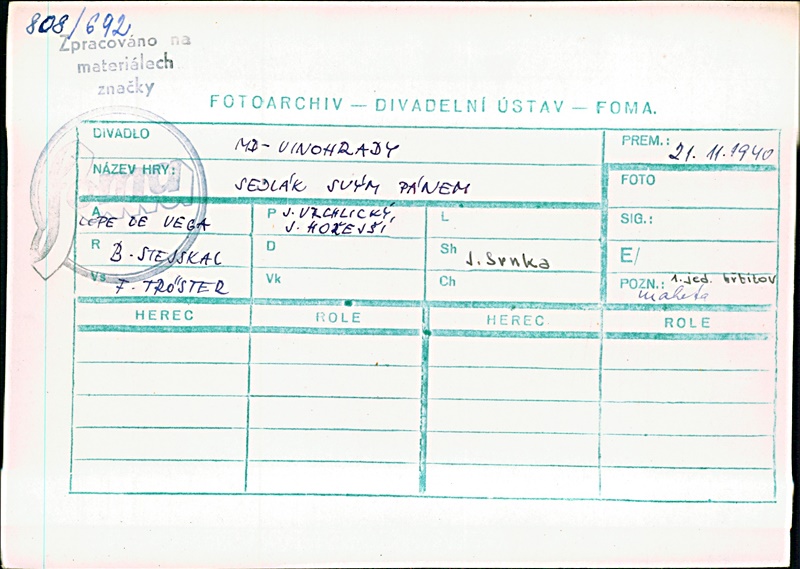 808/692
Zpracováno na
materiálech
značky
FOTOARCHIV — DIVADELNÍ ÚSTAV — FOMA.
DIVADLO MD-VINOHRADY
PREM.: 21. 11. 1940
NÁZEV HRY: SEDLÁK SVÝM PÁNEM
FOTO
A LOPE DE VEGA
P J. VRCHLICKÝ,
J. HOŘEJŠÍ
L
SIG.:
R B. STEJSKAL
D
Sh J. Srnka
E/
Vs F. TRÖSTER
Vk
Ch
POZN.: 1. jed. hřbitov
maketa
HEREC ROLE HEREC ROLE